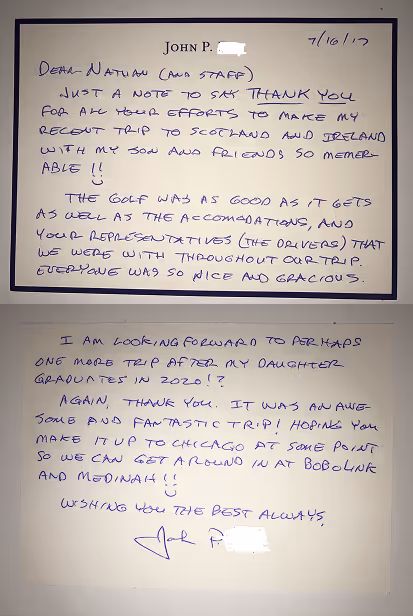 JOHN P.
7/16/17
DEAR NATHAN (AND STAFF)
JUST A NOTE TO SAY THANK YOU
FOR ALL YOUR EFFORTS TO MAKE MY
RECENT TRIP TO SCOTLAND AND IRELAND
WITH MY SON AND FRIENDS SO MEMER-
ABLE !!
THE GOLF WAS AS GOOD AS IT GETS
AS WELL AS THE ACCOMODATIONS, AND
YOUR REPRESENTATIVES (THE DRIVERS) THAT
WE WERE WITH THROUGHOUT OUR TRIP.
EVERYONE WAS SO NICE AND GRACIOUS.
I AM LOOKING FORWARD TO PERHAPS
ONE MORE TRIP AFTER MY DAUGHTER
GRADUATES IN 2020!?
AGAIN, THANK YOU. IT WAS AN AWE-
SOME AND FANTASTIC TRIP! HOPING YOU
MAKE IT UP TO CHICAGO AT SOME POINT
SO WE CAN GET A ROUND IN AT BOBOLINK
AND MEDINAH !!
WISHING YOU THE BEST ALWAYS,
John P.